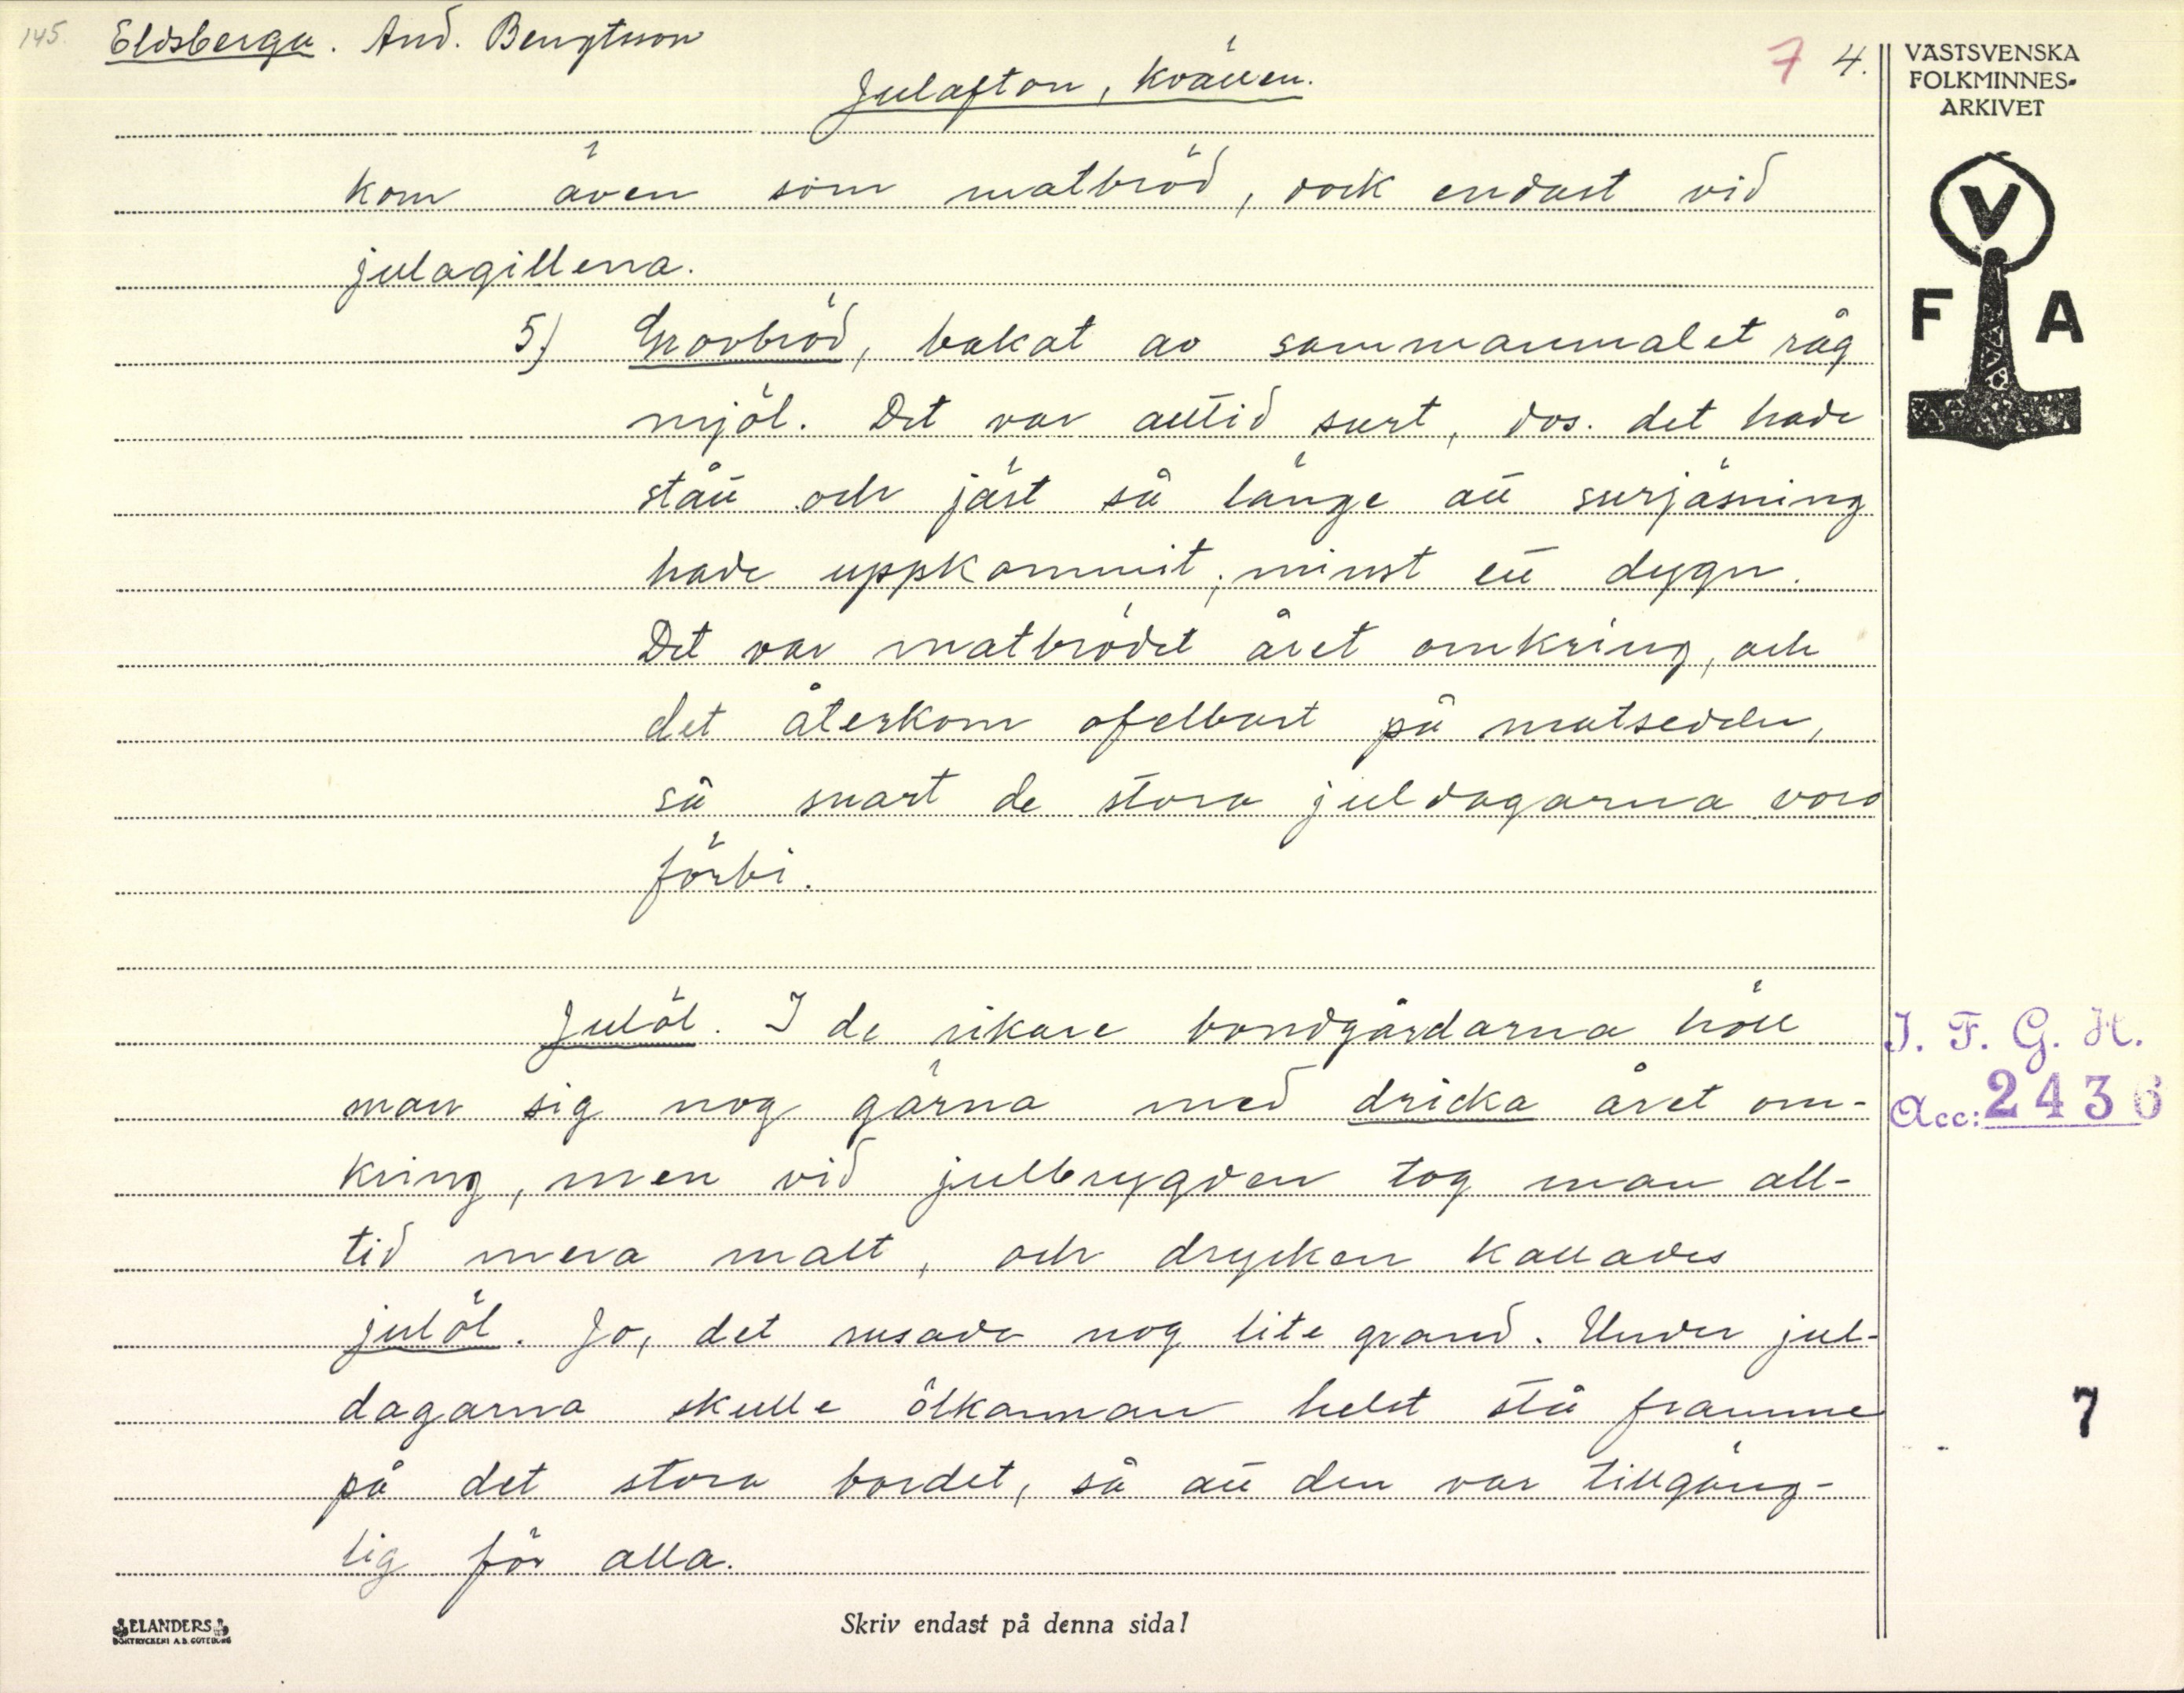 145. Eldsberga. And. Bengtsson
Julafton, kvällen.
7 4.
VÄSTSVENSKA
FOLKMINNES-
ARKIVET
V
F A
kom även som matbröd, dock endast vid
julagillena.
5) Grovbröd, bakat av sammanmalet råg
mjöl. Det var alltid surt, dvs. det hade
stått och jäst så länge att surjäsning
hade uppkommit, minst ett dygn.
Det var matbrödet året omkring, och
det återkom ofelbart på matsedeln,
så snart de stora juldagarna voro
förbi.
Julöl. I de rikare bondgårdarna höll
man sig nog gärna med dricka året om-
kring, men vid julbrygden tog man all-
tid mera malt, och drycken kallades
julöl. Jo, det rusade nog lite grand. Under jul-
dagarna skulle ölkannan helst stå framme
på det stora bordet, så att den var tillgäng-
lig för alla.
I. F. G. H.
Acc: 2436
7
ELANDERS
BOKTRYCKERI A.B. GÖTEBORG
Skriv endast på denna sida!